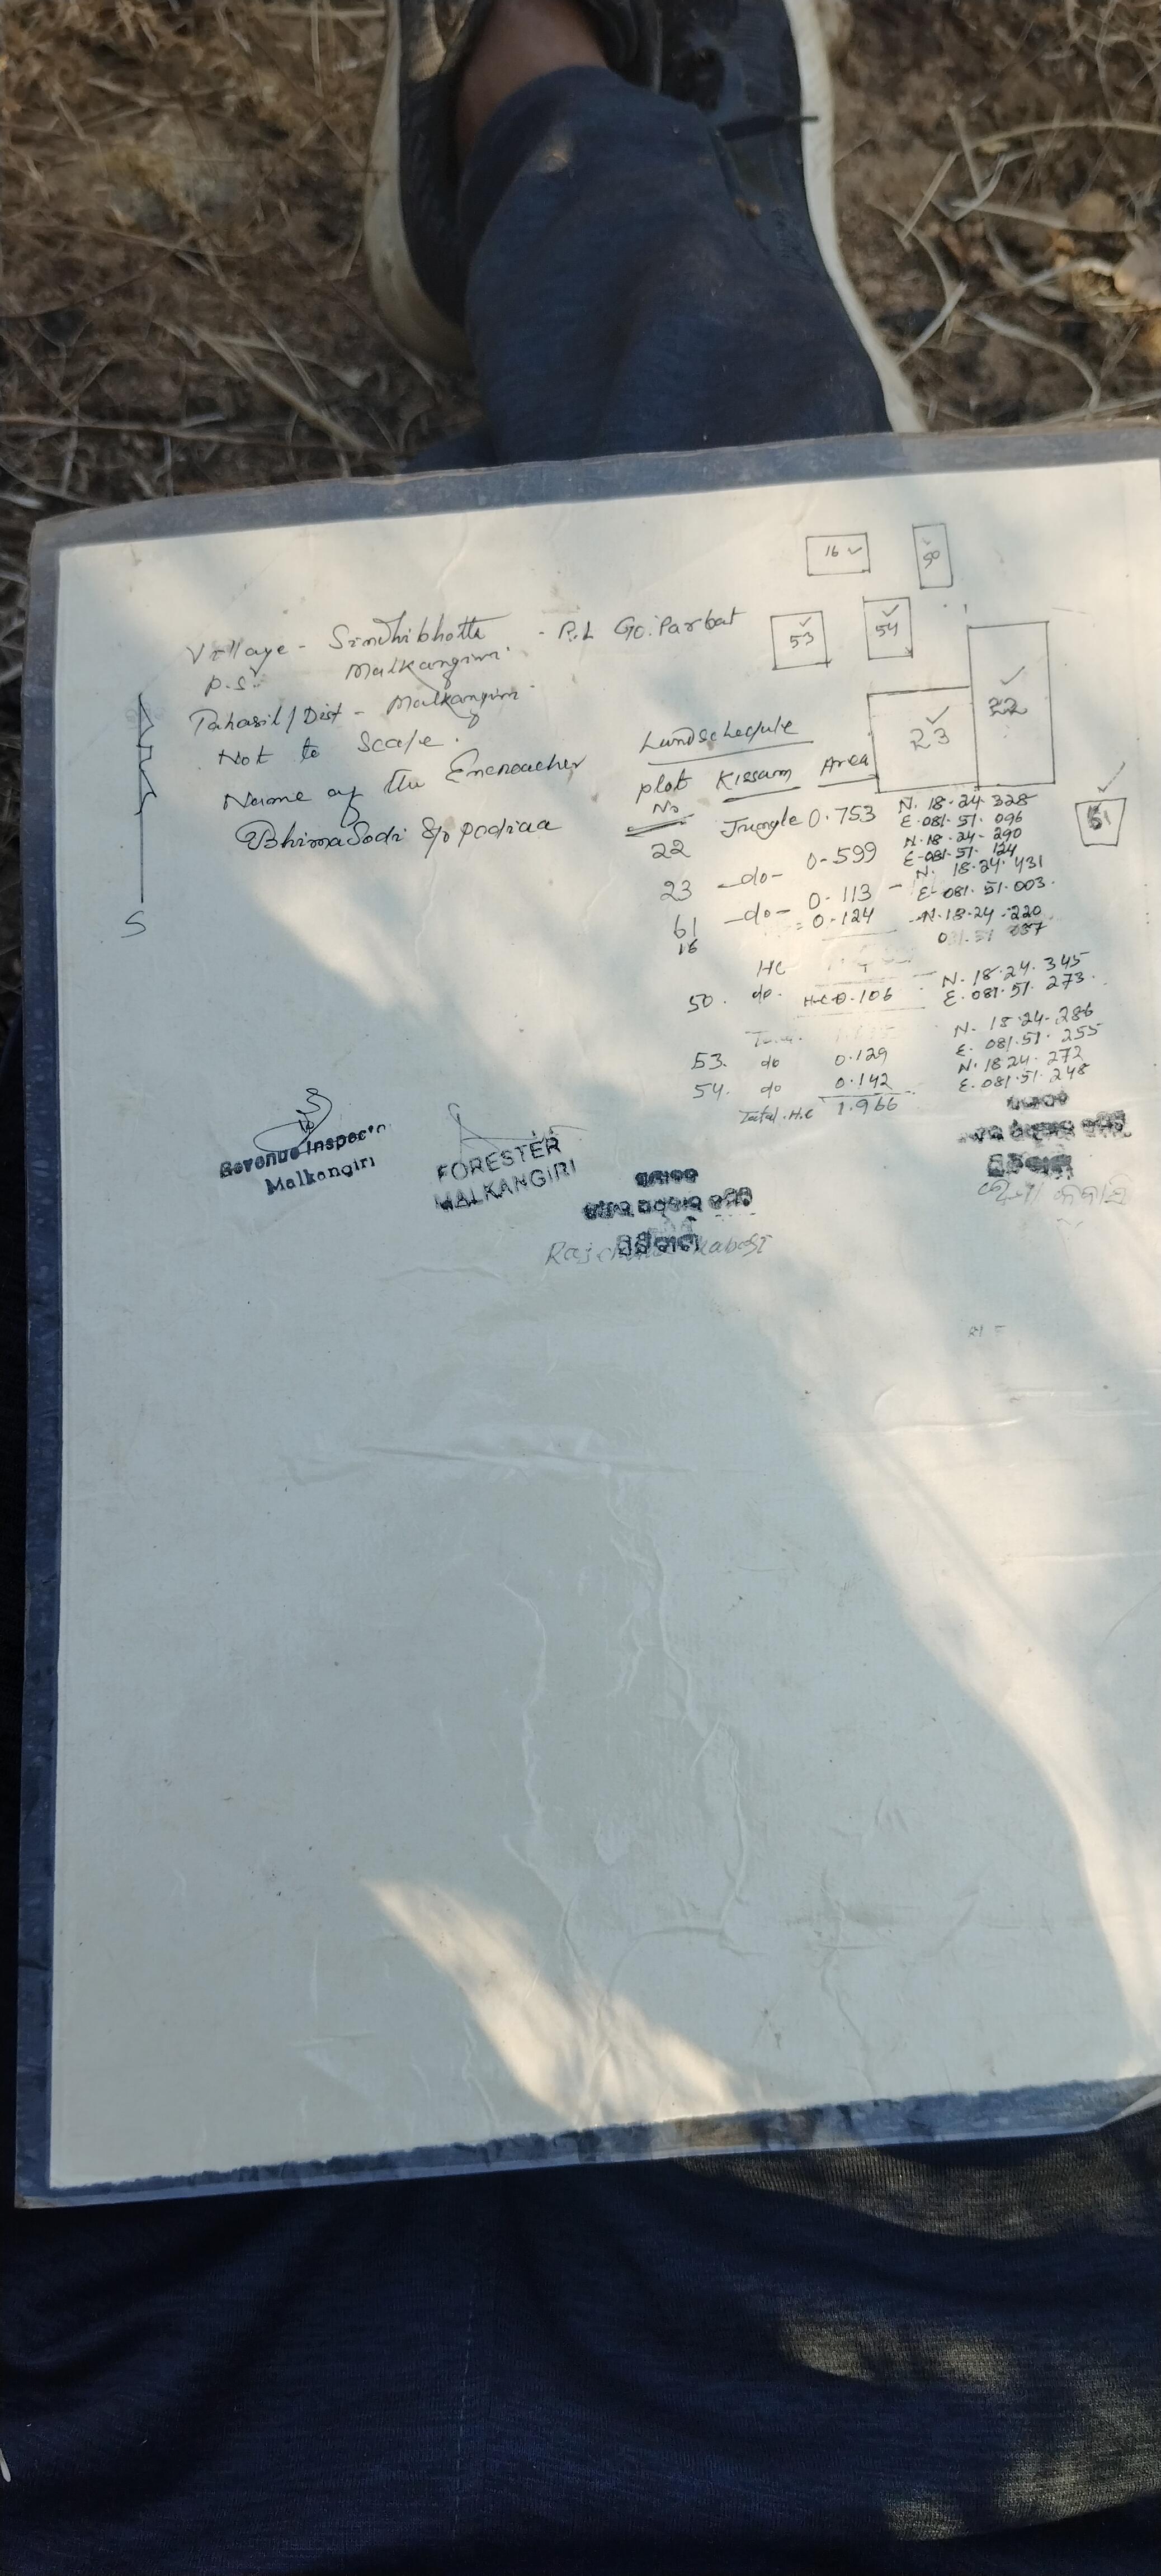 16
50
53
54
22
23
61
Village - Sindhibhotta - P.L Go: Parbat
P.S. Malkangiri
Tahasil/Dist - Malkangiri
Not to Scale.
Name of the Encroacher
Bhima Sodi S/o Podiaa
S
Landschedule
plot No Kissam Area
22 Jungle 0.753 N. 18.24.328
E.081.51.096
23 -do- 0-599 N.18.24-290
E-081.51.124
61 -do- 0.113 - N. 18.24.431
E-081.51.003.
16 = 0.124 - N.18.24-220
HC
50. do. H.C 0.106 N.18.24.345
E.081.51.273.
53. do 0.129 N. 18.24-286
E. 081.51.255
54. do 0.142 N.18.24.272
E.081.51.248
Total.H.C 1.966
Revenue Inspector
Malkangiri
FORESTER
MALKANGIRI